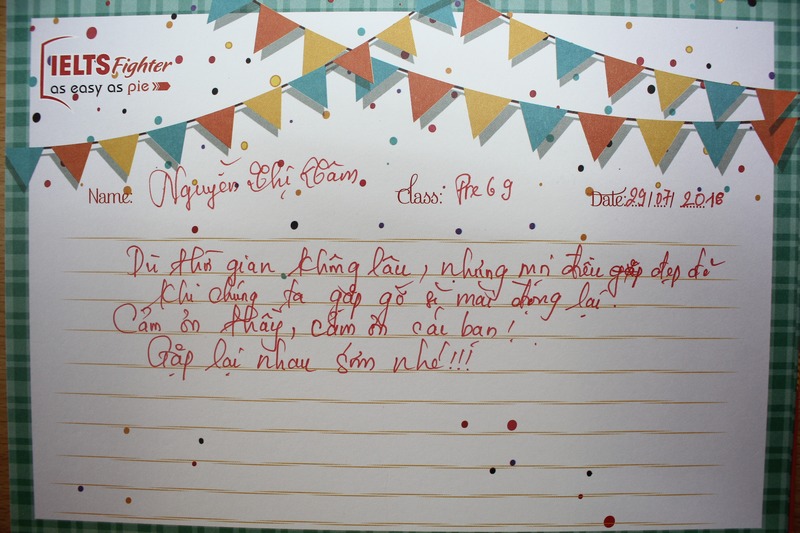 IELTS Fighter
as easy as pie
Name: Nguyễn Thị Tâm Class: Pre 69 Date: 29/07/2018
Dù thời gian không lâu, nhưng mọi điều đẹp đẽ
khi chúng ta gặp gỡ sẽ mãi đọng lại.
Cảm ơn thầy, cảm ơn các bạn!
Gặp lại nhau sớm nhé!!!